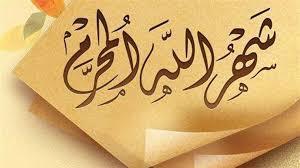 شَهْرُ اللَّهِ المُحَرَّم